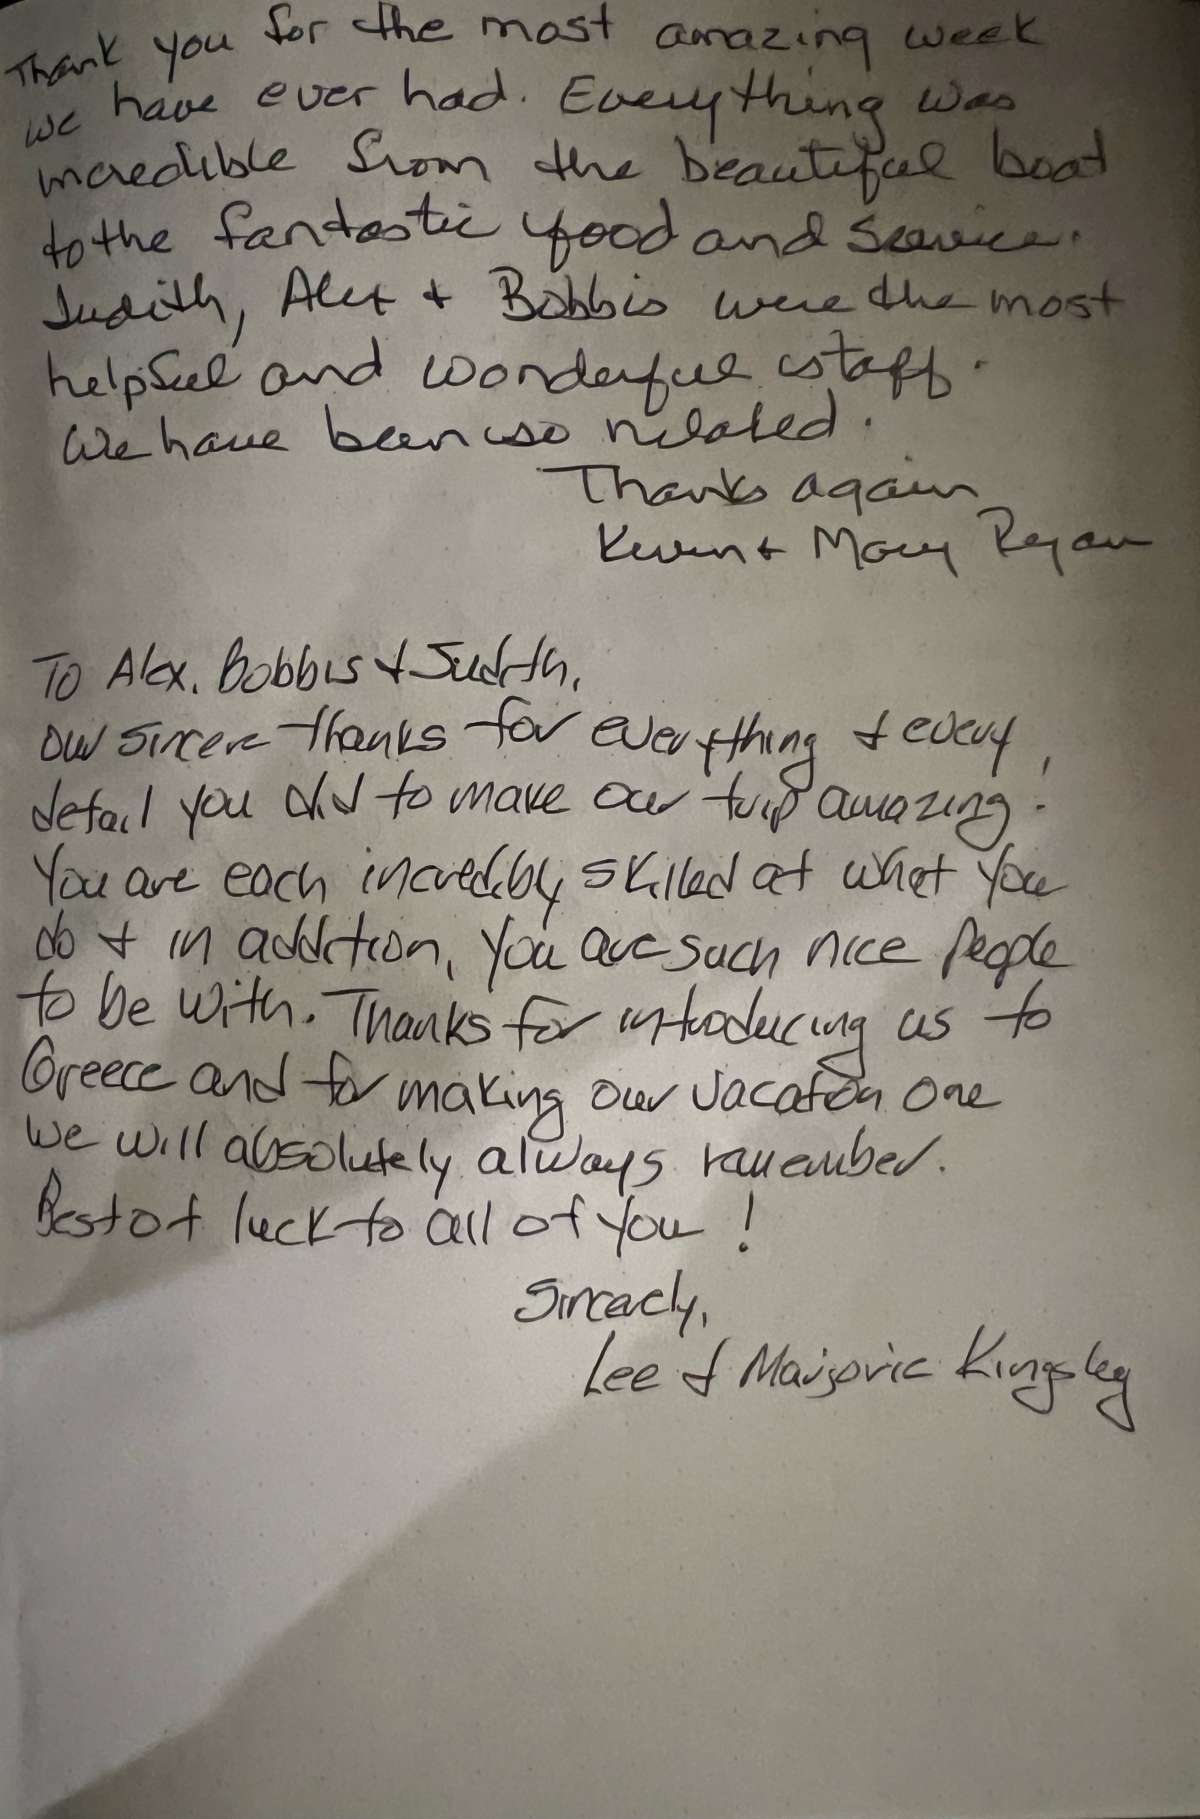 Thank you for the most amazing week
we have ever had. Everything was
incredible from the beautiful boat
to the fantastic food and service.
Judith, Alex + Bobbis were the most
helpful and wonderful staff.
We have been so relaxed.
Thanks again
Kevin + Mary Ryan
To Alex, Bobbis + Judith,
Our sincere thanks for everything + every
detail you did to make our trip amazing!
You are each incredibly skilled at what you
do + in addition, you are such nice people
to be with. Thanks for introducing us to
Greece and for making our vacation one
we will absolutely always remember.
Best of luck to all of you!
Sincerely,
Lee & Marjorie Kingsley